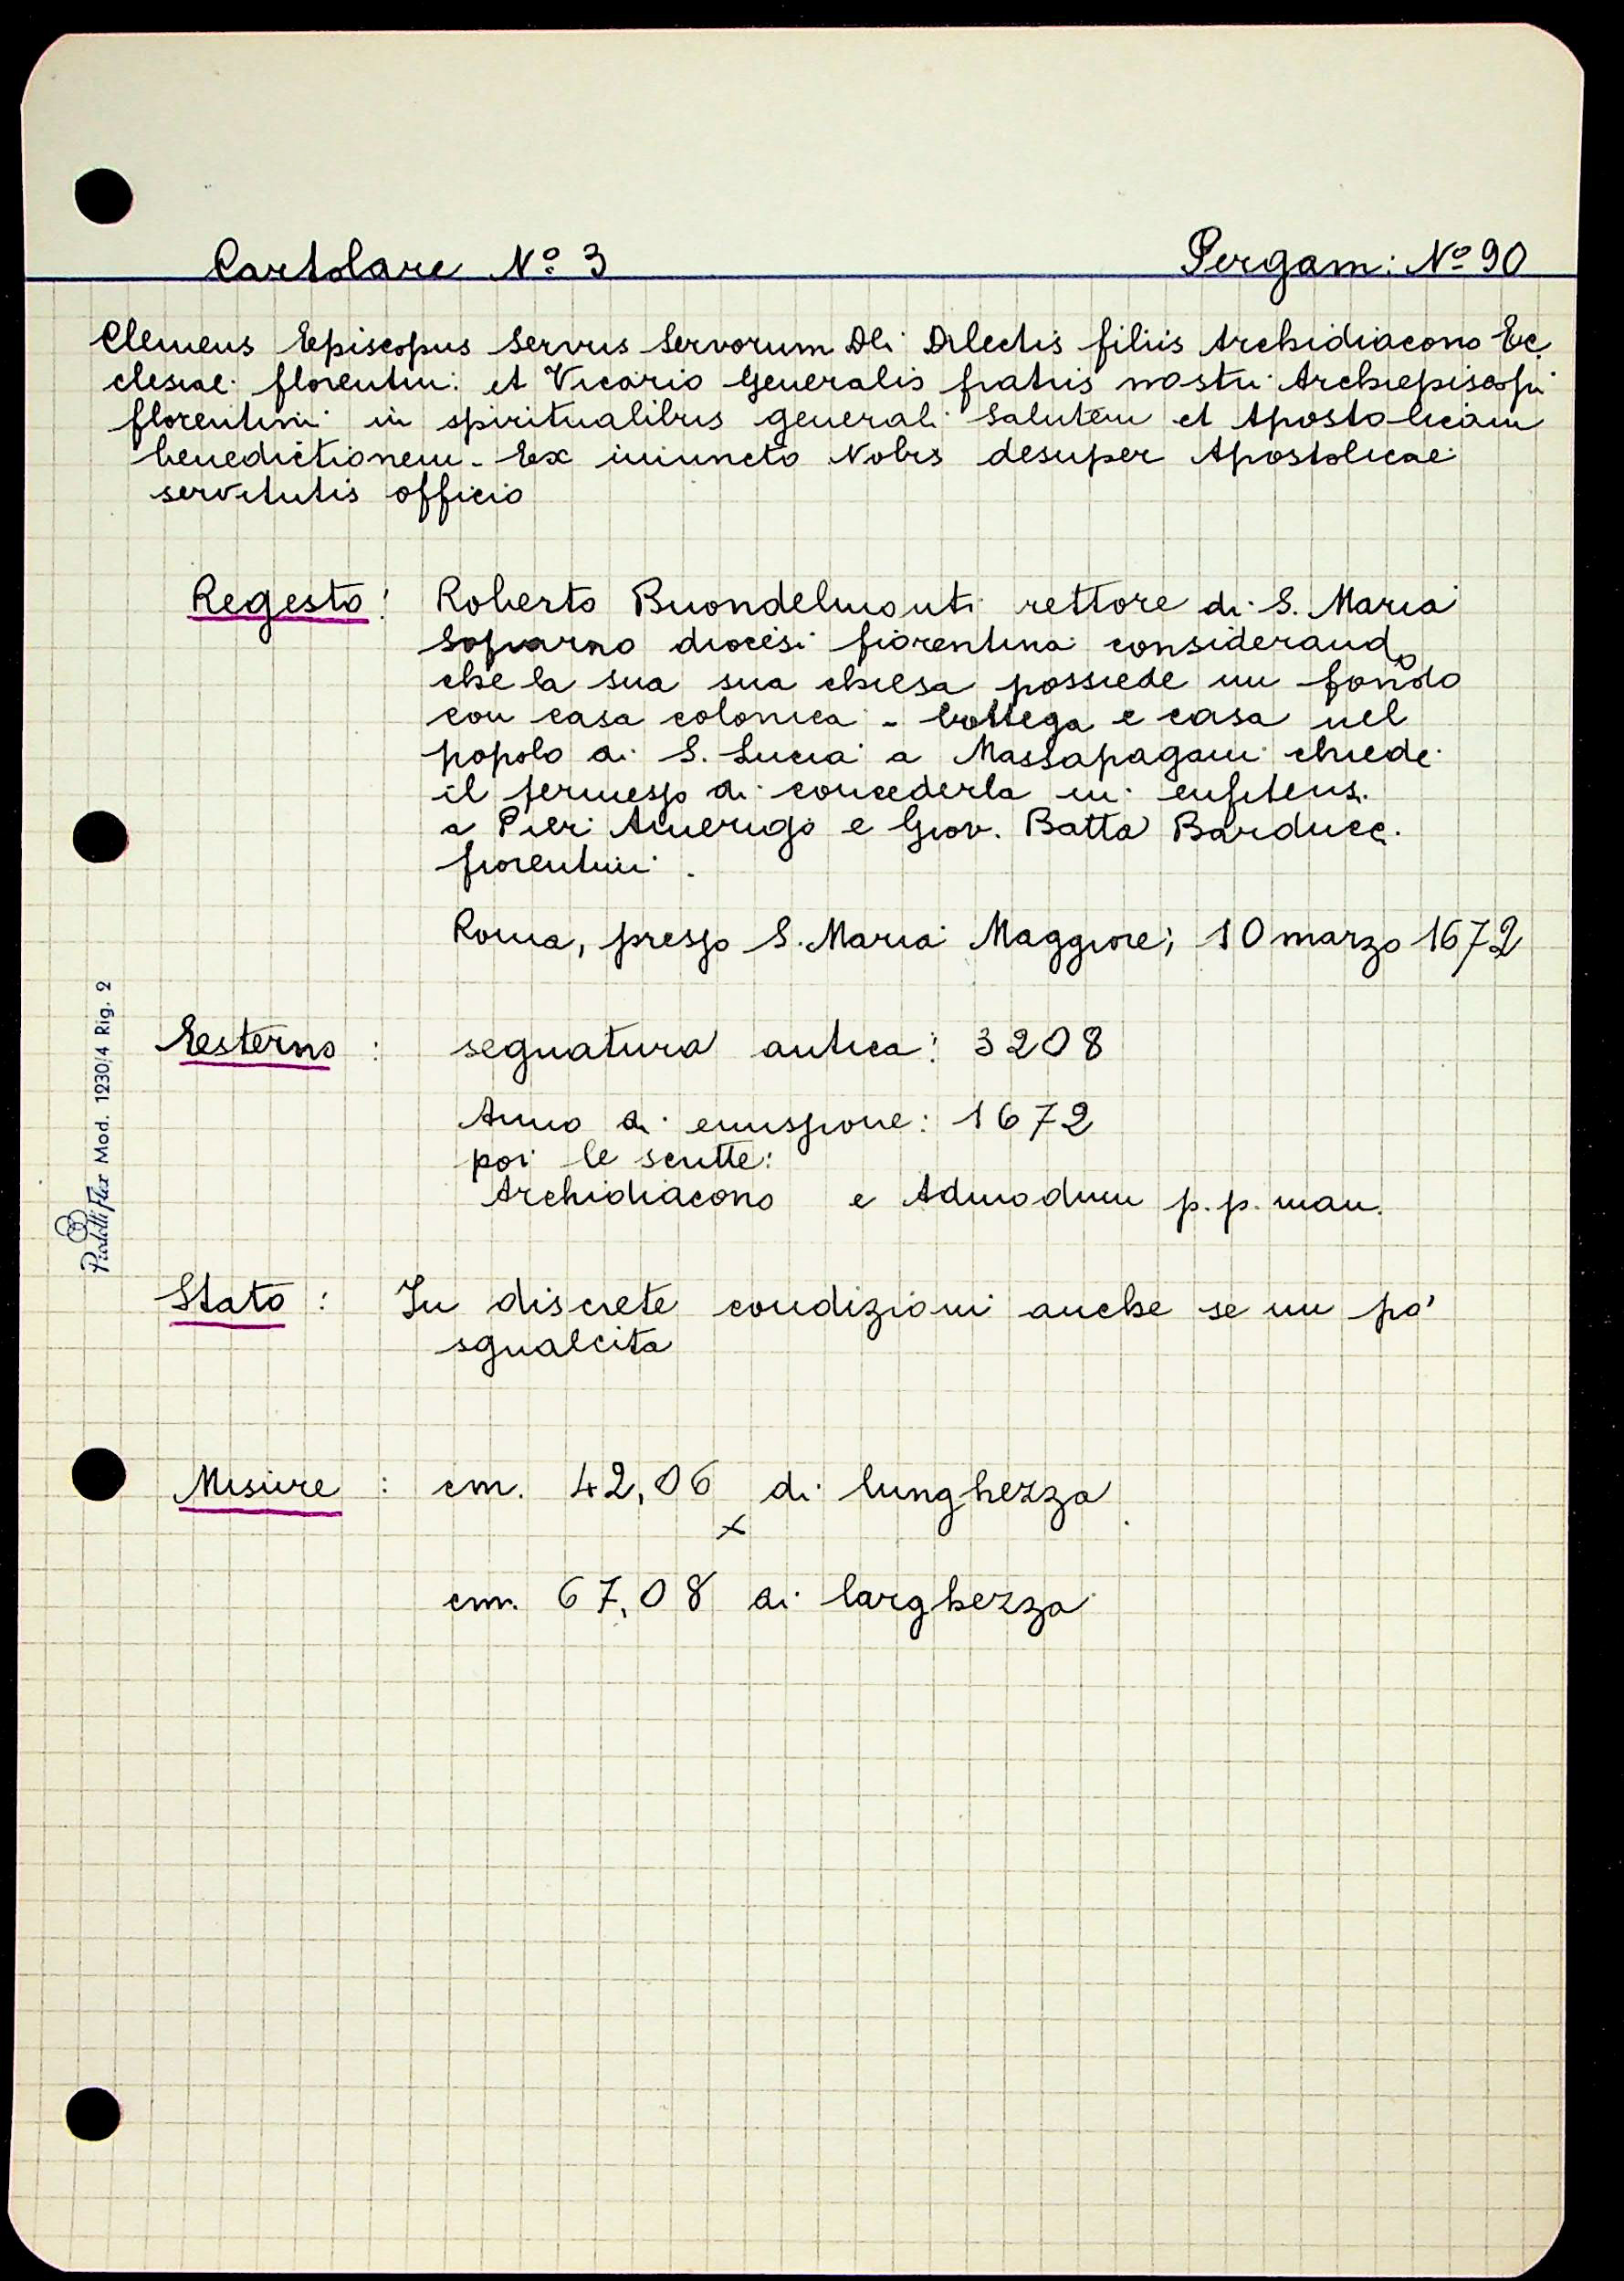 Cartolare Nº 3
Pergam: Nº 90
Clemens Episcopus Servus Servorum Dei Dilectis filiis Archidiacono Ec
clesiae florentin: et Vicario Generalis fratris nostri Archiepiscopi
florentini in spiritualibus generali Salutem et Apostolicam
benedictionem - Ex iniuncto Nobis desuper Apostolicae
servitutis officio
Regesto: Roberto Buondelmonti rettore di S. Maria
Sofiarno diocesi fiorentina considerando
che la sua sua chiesa possiede un fondo
con casa colonica - bottega e casa nel
popolo di S. Lucia a Massapagani chiede
il permesso di concederla in enfiteus.
a Pier Amerigo e Giov. Batta Barducc.
fiorentini.
Roma, presso S. Maria Maggiore; 10 marzo 1672
Esterno: segnatura antica: 3208
Anno di emissione: 1672
poi le scritte:
Archidiacono e Admodum p. p. man.
Stato: In discrete condizioni anche se un po'
sgualcita
Misure: cm. 42,06 di lunghezza
x
cm. 67,08 di larghezza
Pialetti Flex Mod. 1230/4 Rig. 2